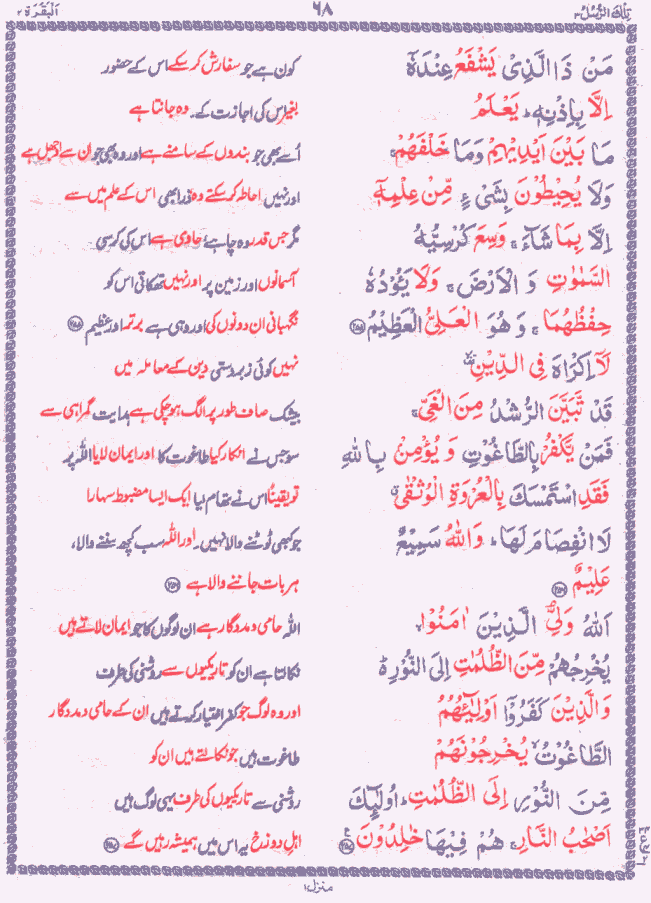 تِلْكَ الرُّسُلُ ۳ ۶۸ اَلْبَقَرَة ۲
مَنْ ذَا الَّذِىْ يَشْفَعُ عِنْدَهٗۤ کون ہے جو سفارش کر سکے اس کے حضور
اِلَّا بِاِذْنِهٖ ؕ يَعْلَمُ بغیر اس کی اجازت کے۔ وہ جانتا ہے
مَا بَيْنَ اَيْدِيْهِمْ وَمَا خَلْفَهُمْ ۚ اُسے بھی جو بندوں کے سامنے ہے اور وہ بھی جو ان سے اوجھل ہے
وَلَا يُحِيْطُوْنَ بِشَىْءٍ مِّنْ عِلْمِهٖۤ اور نہیں احاطہ کر سکتے وہ ذرا بھی اس کے علم میں سے
اِلَّا بِمَا شَآءَ ۚ وَسِعَ كُرْسِيُّهُ مگر جس قدر وہ چاہے، حاوی ہے اس کی کرسی
السَّمٰوٰتِ وَ الْاَرْضَ ۚ وَلَا يَـُٔوْدُهٗ آسمانوں اور زمین پر اور نہیں تھکاتی اس کو
حِفْظُهُمَا ۚ وَ هُوَ الْعَلِىُّ الْعَظِيْمُ ﴿۲۵۵﴾ نگہبانی ان دونوں کی اور وہی ہے برتر اور عظیم ﴿۲۵۵﴾
لَاۤ اِكْرَاهَ فِى الدِّيْنِ ۙ نہیں کوئی زبردستی دین کے معاملہ میں
قَدْ تَّبَيَّنَ الرُّشْدُ مِنَ الْغَىِّ ۚ بیشک صاف طور پر الگ ہو چکی ہے ہدایت گمراہی سے
فَمَنْ يَّكْفُرْ بِالطَّاغُوْتِ وَ يُؤْمِنْۢ بِاللّٰهِ سو جس نے انکار کیا طاغوت کا اور ایمان لایا اللہ پر
فَقَدِ اسْتَمْسَكَ بِالْعُرْوَةِ الْوُثْقٰى ۗ تو یقیناً اس نے تھام لیا ایک ایسا مضبوط سہارا
لَا انْفِصَامَ لَهَا ؕ وَاللّٰهُ سَمِيْعٌ جو کبھی ٹوٹنے والا نہیں۔ اور اللہ سب کچھ سننے والا،
عَلِيْمٌ ﴿۲۵۶﴾ ہر بات جاننے والا ہے ﴿۲۵۶﴾
اَللّٰهُ وَلِىُّ الَّذِيْنَ اٰمَنُوْا ۙ اللہ حامی و مددگار ہے ان لوگوں کا جو ایمان لاتے ہیں
يُخْرِجُهُمْ مِّنَ الظُّلُمٰتِ اِلَى النُّوْرِ ؕ نکالتا ہے ان کو تاریکیوں سے روشنی کی طرف
وَالَّذِيْنَ كَفَرُوْۤا اَوْلِيٰٓئُهُمُ اور وہ لوگ جو کفر اختیار کرتے ہیں ان کے حامی و مددگار
الطَّاغُوْتُ ۙ يُخْرِجُوْنَهُمْ طاغوت ہیں جو نکالتے ہیں ان کو
مِّنَ النُّوْرِ اِلَى الظُّلُمٰتِ ؕ اُولٰٓئِكَ روشنی سے تاریکیوں کی طرف یہی لوگ ہیں
اَصْحٰبُ النَّارِ ۚ هُمْ فِيْهَا خٰلِدُوْنَ ﴿۲۵۷﴾ اہلِ دوزخ یہ اس میں ہمیشہ رہیں گے ﴿۲۵۷﴾
منزل ۱